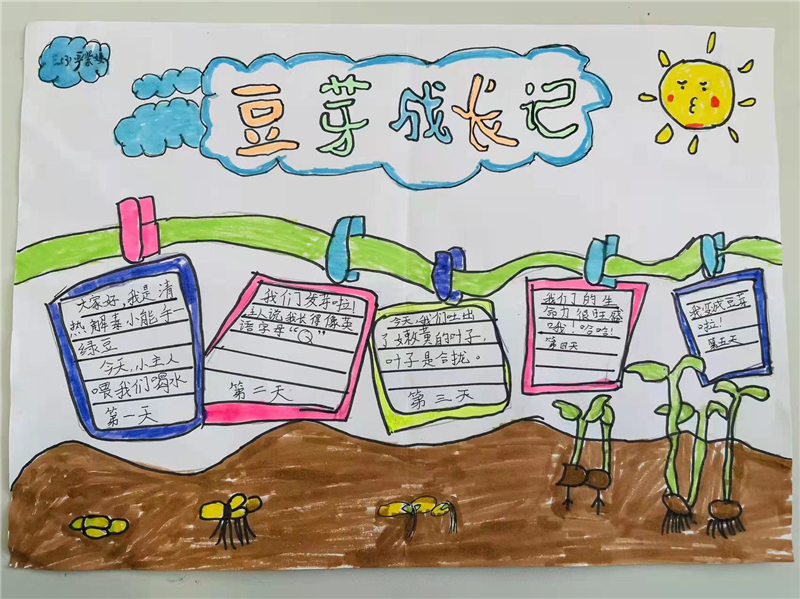 豆芽成长记
大家好,我是清
热解毒小能手一
绿豆
今天,小主人
喂我们喝水
第一天
我们发芽啦!
主人说我长得像英
语字母“Q”
第二天
今天,我们吐出
了嫩黄的叶子,
叶子是合拢。
第三天
我们的生
命力很旺盛
哦!哈哈!
第四天
我变成豆芽
啦!
第五天